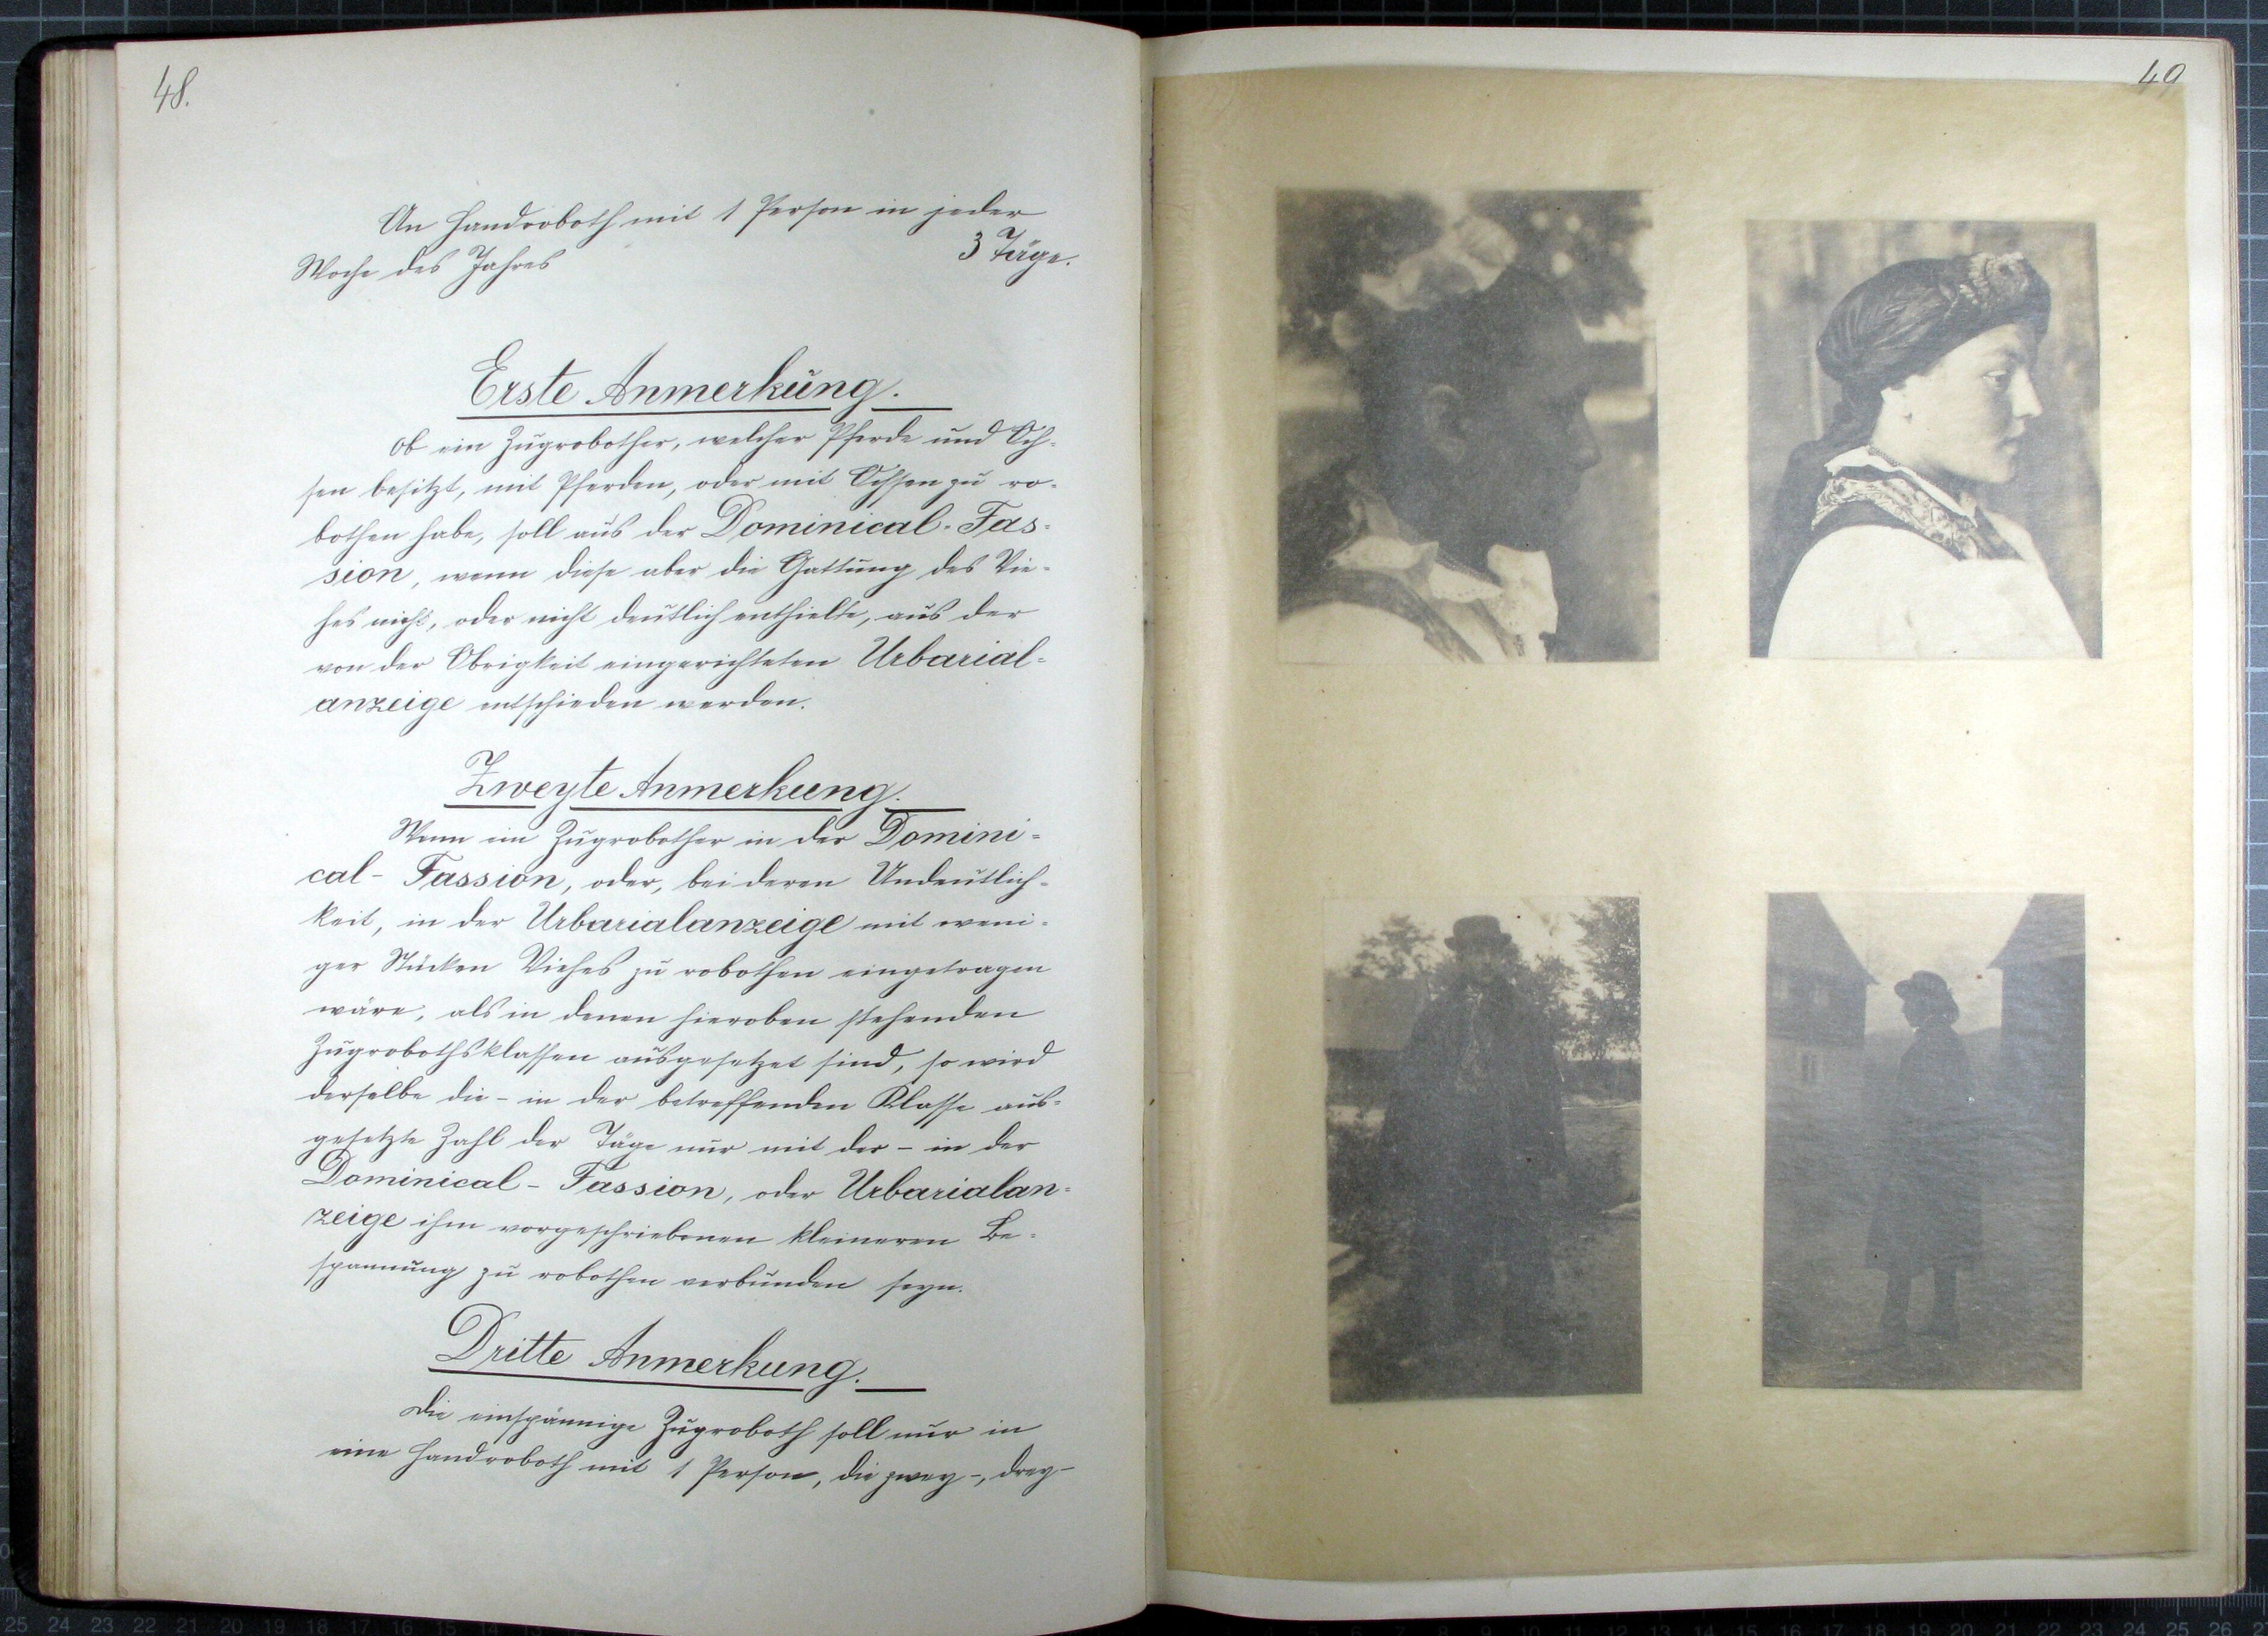 48.
An Handroboth mit 1 Person in jeder
Woche des Jahres 3 Täge.
Erste Anmerkung.
Ob ein Zugrobother, welcher Pferde und Och-
sen besitzt, mit Pferden, oder mit Ochsen zu ro-
bothen habe, soll aus der Dominical-Fas-
sion, wenn diese aber die Gattung des Vie-
hes nicht, oder nicht deutlich enthielte, aus der
von der Obrigkeit eingerichteten Urbarial-
anzeige entschieden werden.
Zweyte Anmerkung.
Wenn ein Zugrobother in der Domini-
cal- Fassion, oder, bei deren Undeutlich-
keit, in der Urbarialanzeige mit weni-
ger Stücken Viehes zu robothen eingetragen
wäre, als in denen hieroben stehenden
Zugrobothsklassen ausgesetzet sind, so wird
derselbe die - in der betreffenden Klasse aus-
gesetzte Zahl der Täge nur mit der - in der
Dominical- Fassion, oder Urbarialan-
zeige ihm vorgeschriebenen kleineren Be-
spannung zu robothen verbunden seyn.
Dritte Anmerkung.
Die einspännige Zugroboth soll nur in
eine Handroboth mit 1 Person, die zwey-, drey-
49
25 24 23 22 21 20 19 18 17 16 15 14
5 6 7 8 9 10 11 12 13 14 15 16 17 18 19 20 21 22 23 24 25 26